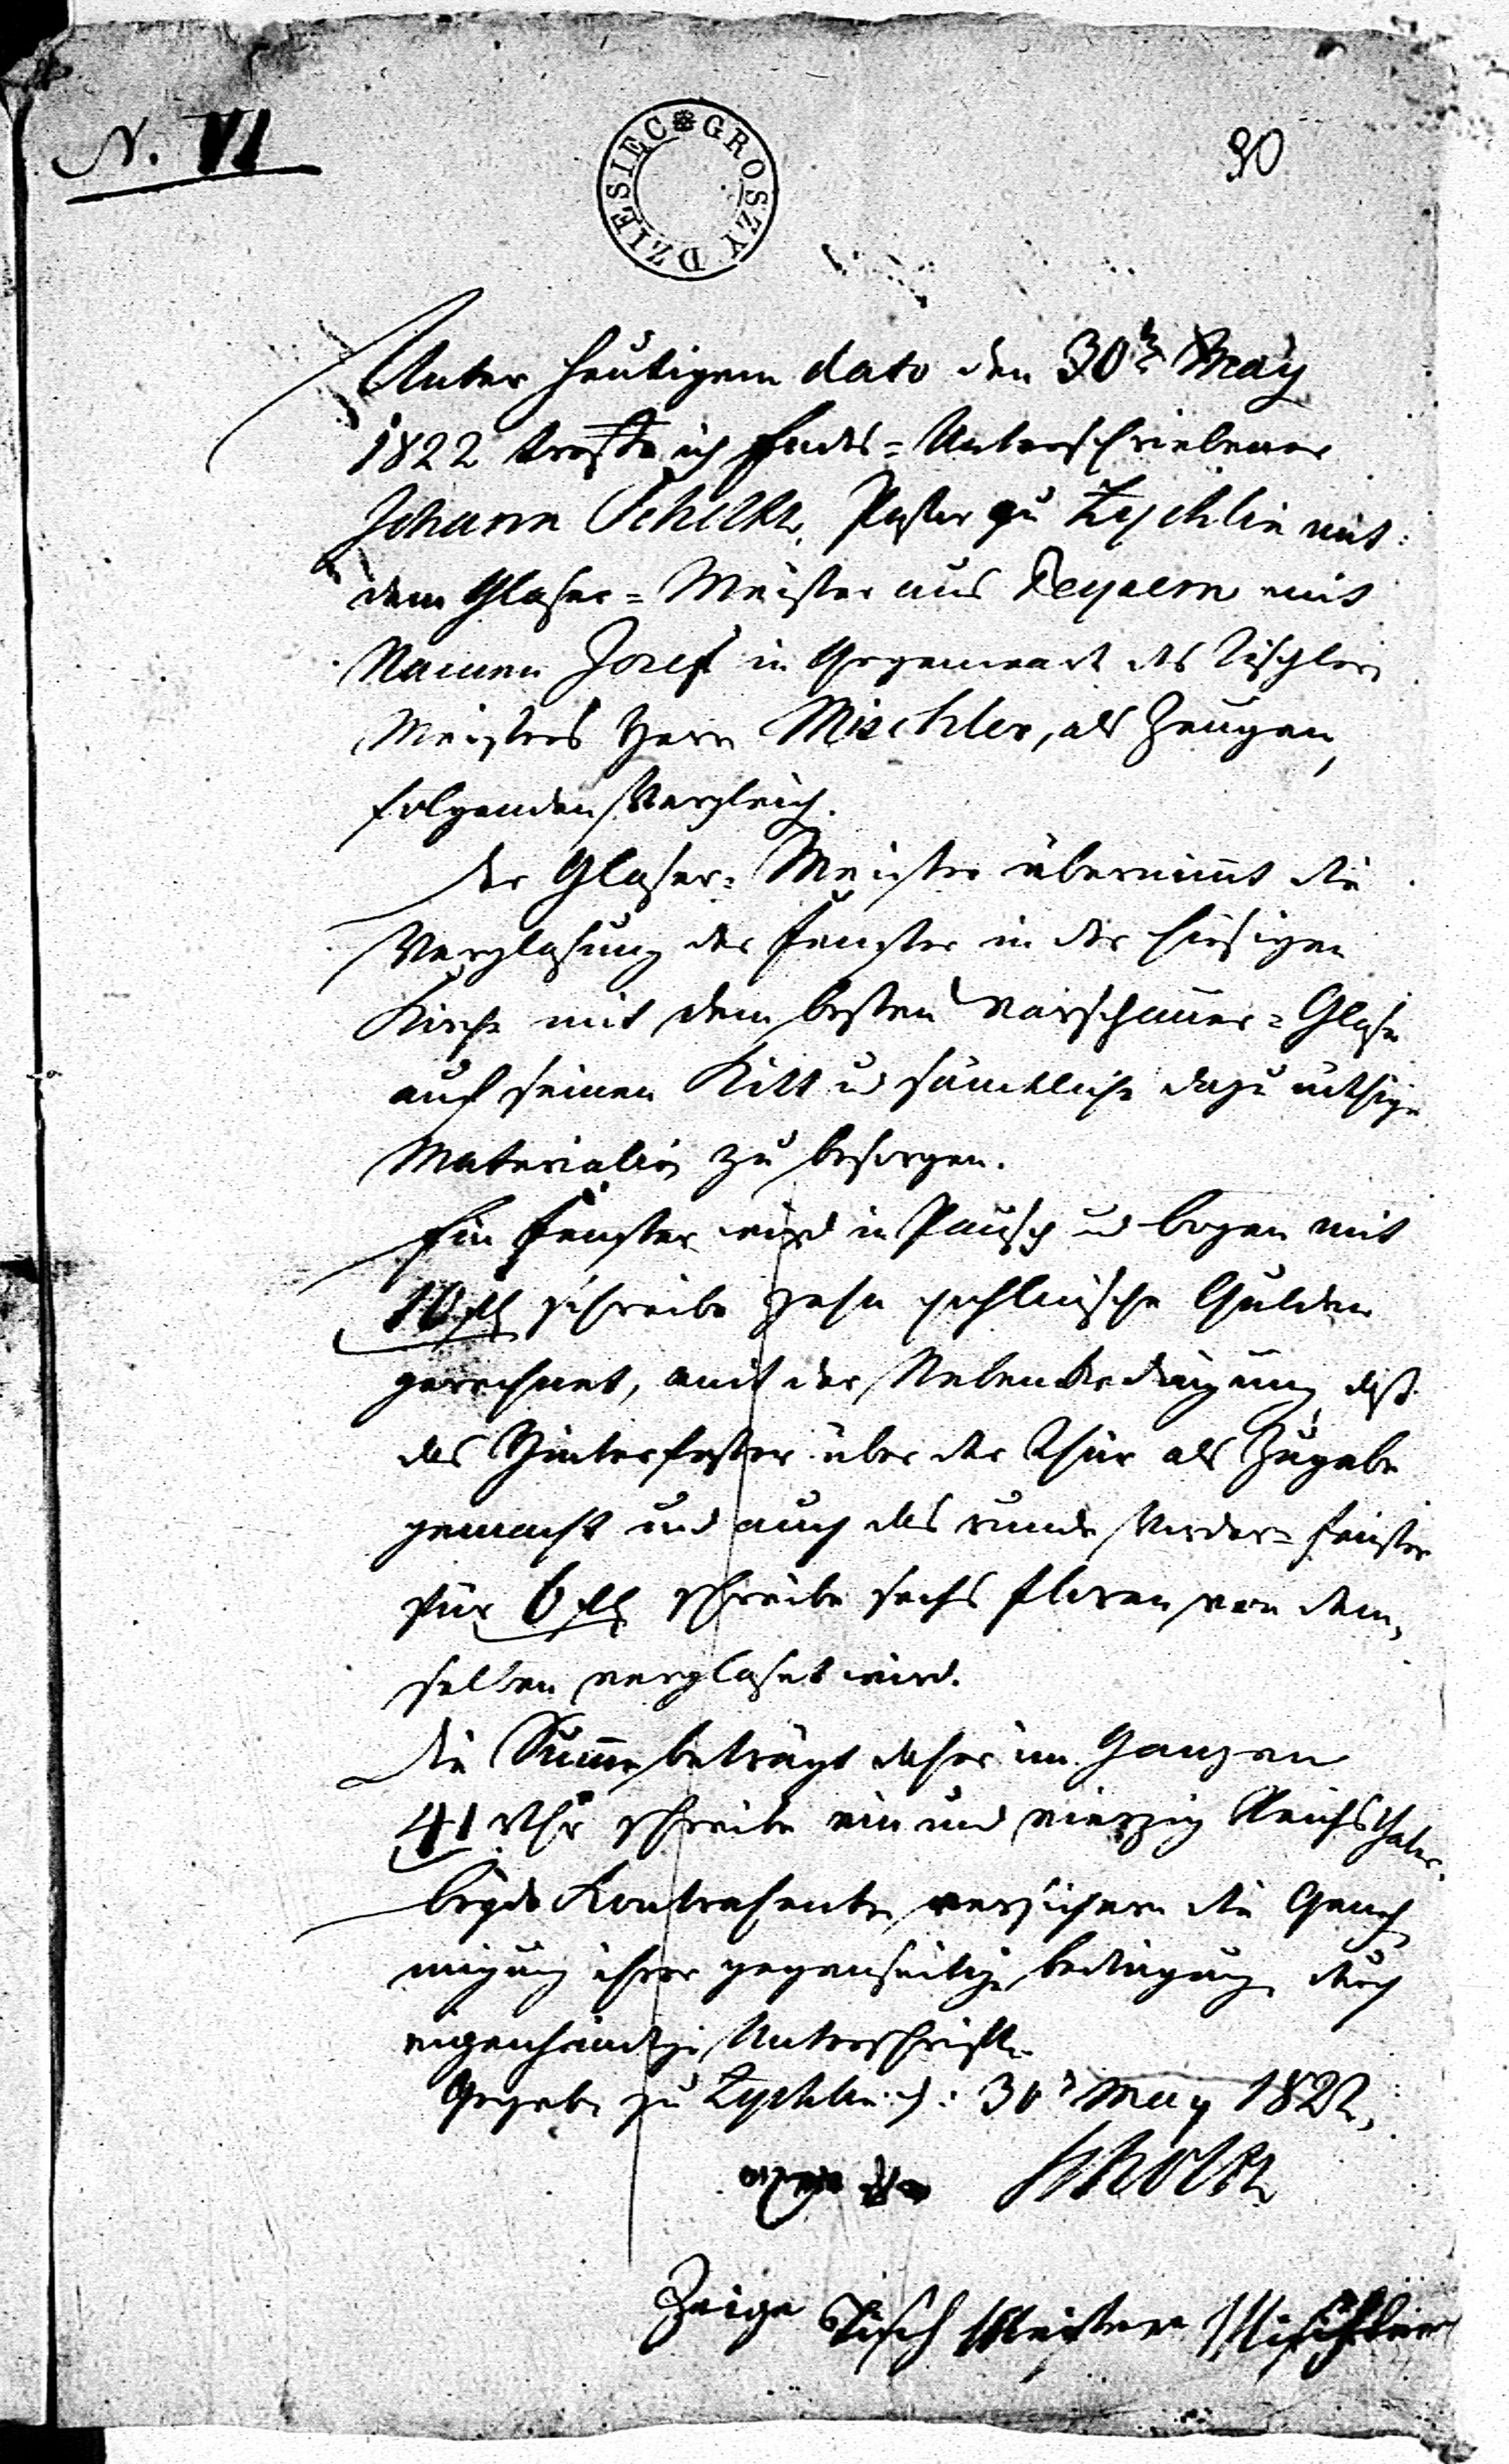 N. VI
GROSZY DZIESIEC
30
Unter heutigem dato den 30t May
1822 treffe ich Endes=Unterschriebener
Johann Scholtz, Pastor zu Zychlin mit
dem Glaser=Meister aus mit
Namen Josef in Gegenwart des Tischler
Meisters Herr Mischler, als Zeugen,
folgenden Vergleich.
Der Glaser=Meister übernimmt die
Verglasung der Fenster in der hiesigen
Kirche mit dem besten Warschauer=Glase
auch seinen Kitt u sämtliche dazu nöthige
Materialien zu besorgen.
Ein Fenster wird in Pausch und Bogen mit
10 fl schreibe zehn pohlnische Gulden
gerechnet, mit der Nebenbedingung daß
das Hinterfenster über der Thür als Zugabe
gemacht und auch das runde Vorder=Fenster
für 6 fl schreibe sechs Floren von dem,
selben verglaset wird.
Die Summe beträgt daher im Ganzen
41 Rthr schreibe ein und vierzig Reichsthaler.
Beyde Kontrahenten versichern die Geneh,
migung ihrer gegenseitigen Bedingungen durch
eigenhändige Unterschriften.
Gegeben zu Zychlin d: 30t May 1822,
Scholtz
Zeige Tisch Meister Mischler